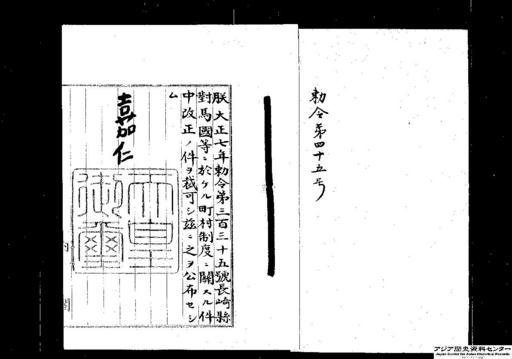 勅令第四十五号
朕大正七年勅令第三百三十五號長崎縣
對馬國等ニ於ケル町村制度ニ關スル件
中改正ノ件ヲ裁可シ玆ニ之ヲ公布セシ
ム
嘉仁
天皇
御璽
アジア歴史資料センター
Japan Center for Asian Historical Records